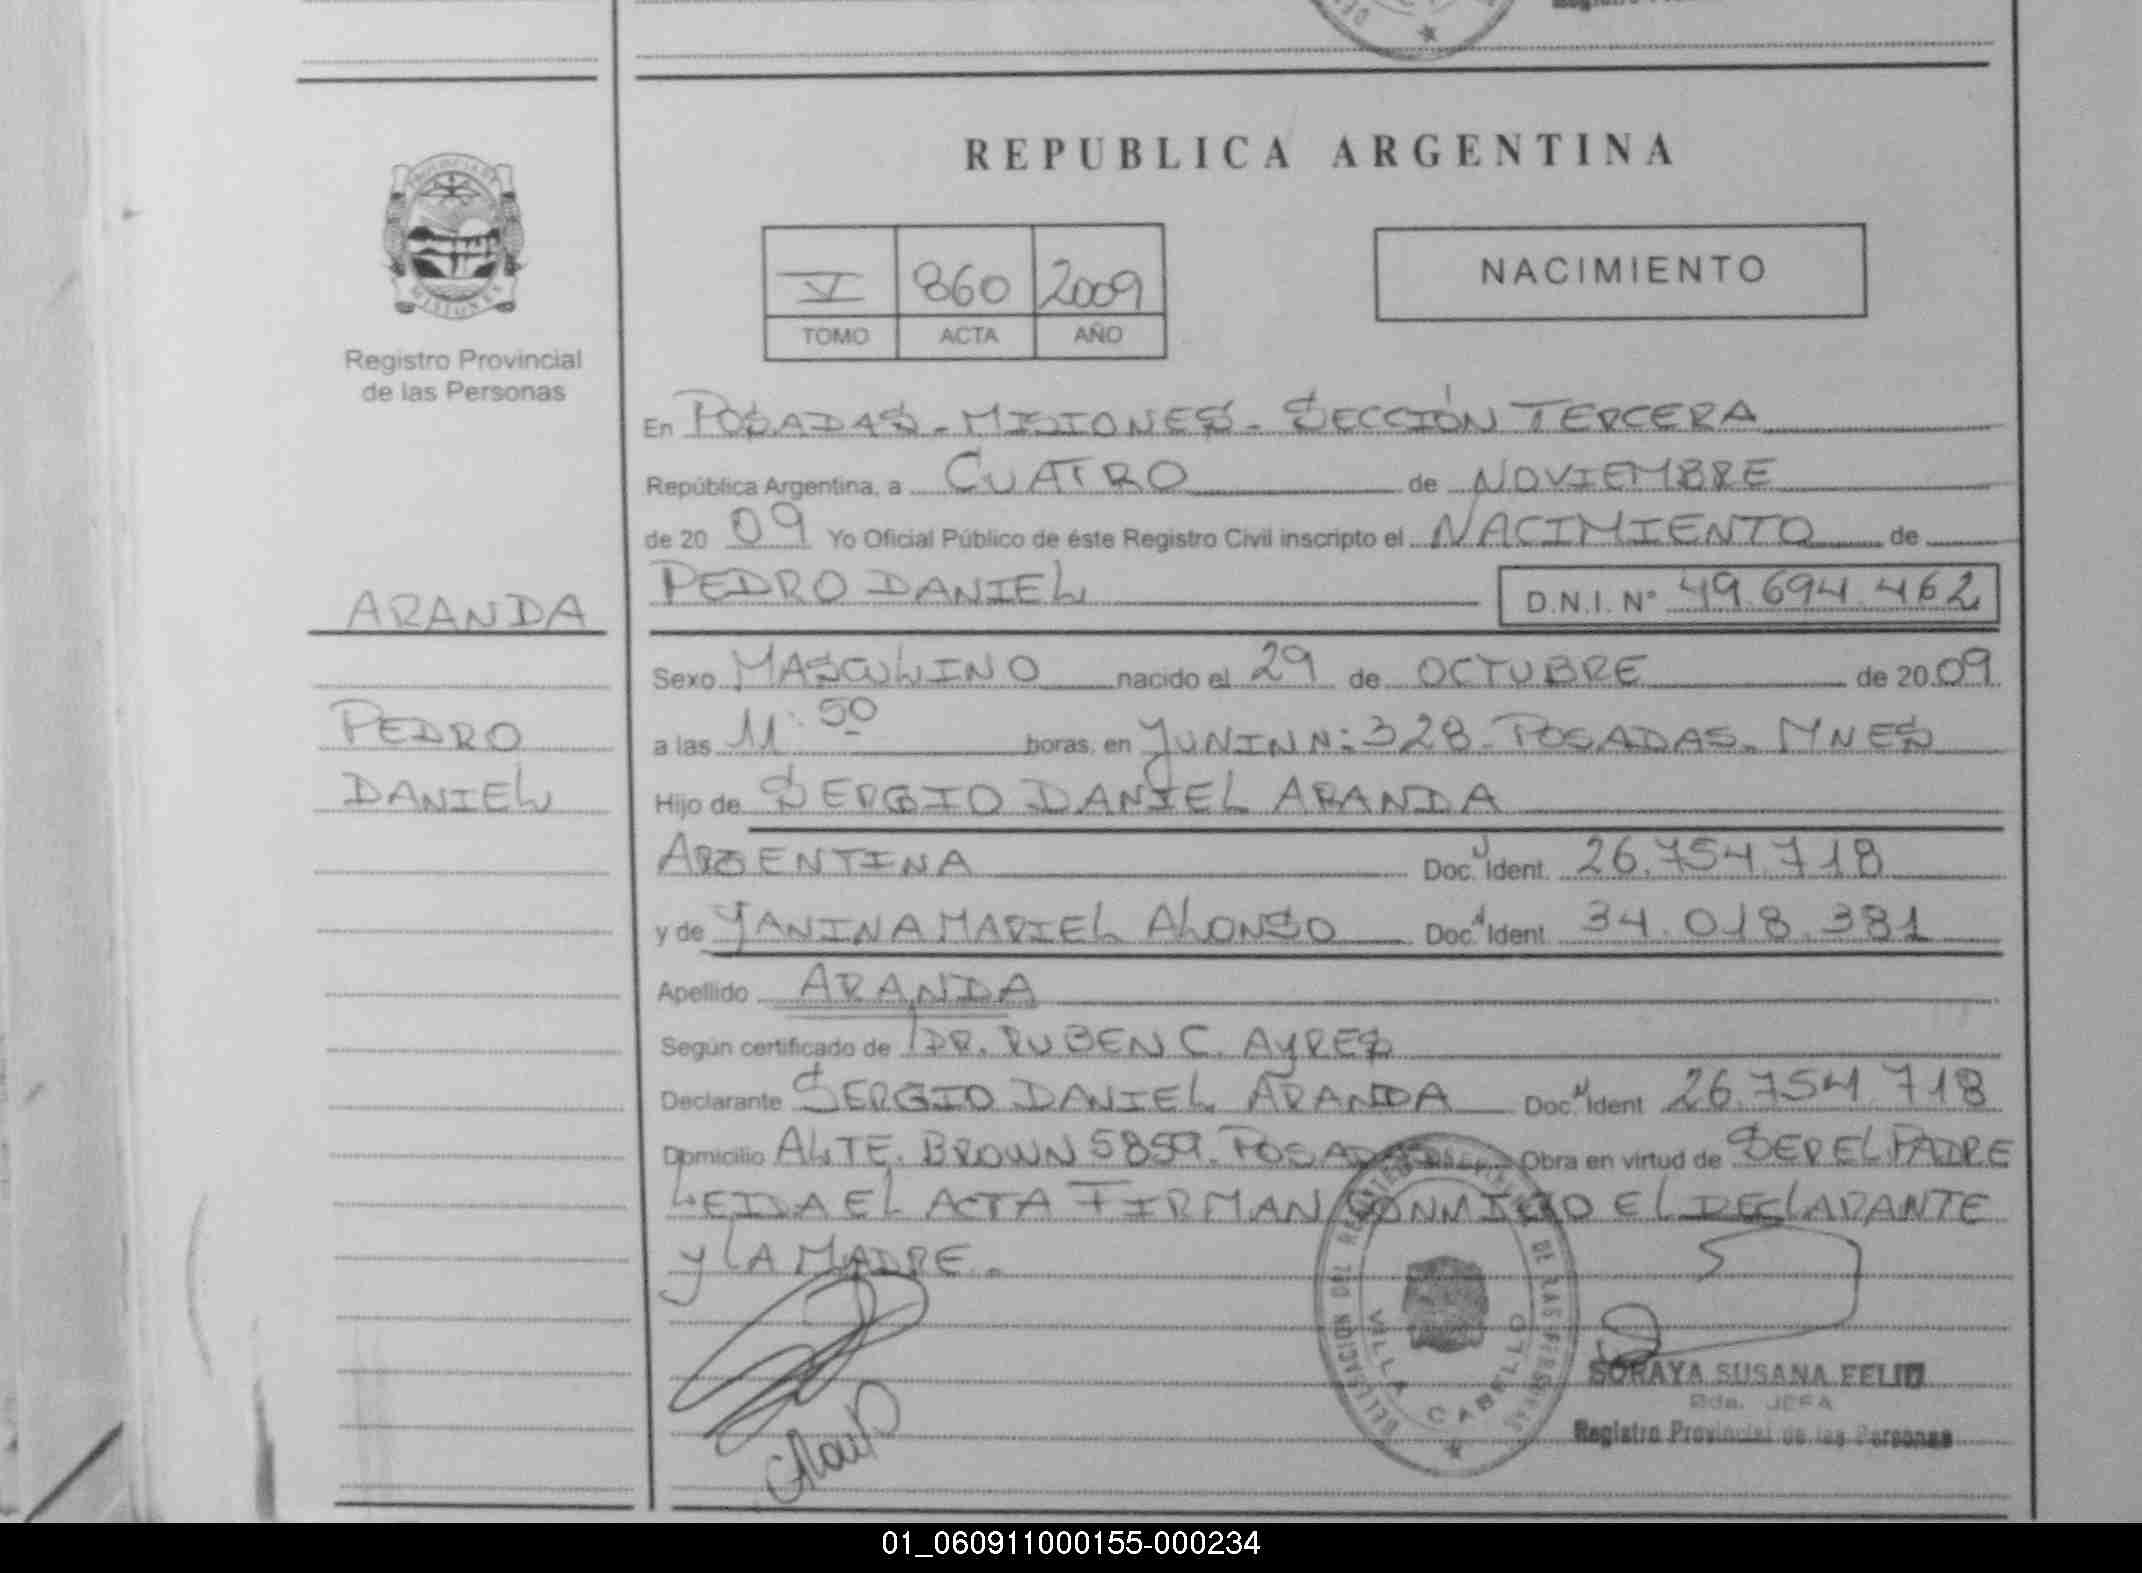 REPUBLICA ARGENTINA
NACIMIENTO
V 860 2009
TOMO ACTA AÑO
Registro Provincial
de las Personas
En POSADAS - MISIONES - SECCIÓN TERCERA
República Argentina, a CUATRO de NOVIEMBRE
de 20 09 Yo Oficial Público de éste Registro Civil inscripto el NACIMIENTO de
PEDRO DANIEL D.N.I. N° 49.694.462
ARANDA
Sexo MASCULINO nacido el 29 de OCTUBRE de 20 09
PEDRO
a las 11:50 horas, en JUNIN N: 328 - POSADAS - MNES
DANIEL
Hijo de SERGIO DANIEL ARANDA
ARGENTINA Doc. Ident. 26.754.718
y de YANINA MARIEL ALONSO Doc. Ident. 34.018.381
Apellido ARANDA
Según certificado de DR. RUBEN C. AYRES
Declarante SERGIO DANIEL ARANDA Doc. Ident 26.754.718
Domicilio ALTE. BROWN 5859. POSADAS Obra en virtud de SER EL PADRE
LEIDA EL ACTA FIRMAN CONMIGO EL DECLARANTE
Y LA MADRE.
VILLA CABELLO
SORAYA SUSANA FELIU
JEFA
Registro Provincial de las Personas
01_060911000155-000234